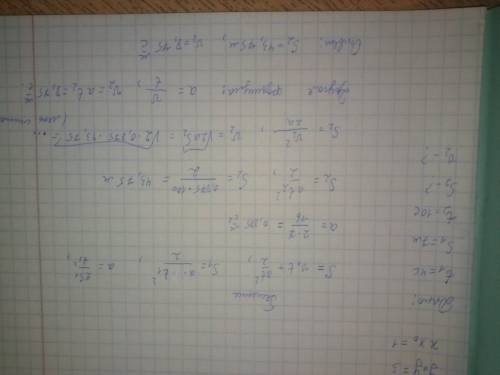 x x₀ = 1
Дано:
t₁ = 4c
S₁ = 7м
t₂ = 10c
S₂ - ?
v₂ - ?
Решение
S = v₀t + at²/2, S₁ = a·t₁²/2, a = 2S₁/t₁²,
a = 2·7/16 = 0,875 м/с²
S₂ = at₂²/2, S₂ = 0,875·100/2 = 43,75 м
S₂ = v₂²/2a, v₂ = √2aS₂ = √2·0,875·43,75 = ...
другая формула: a = v/t, v₂ = at₂ = 8,75 м/с
Ответ: S₂ = 43,75 м, v₂ = 8,75 м/с